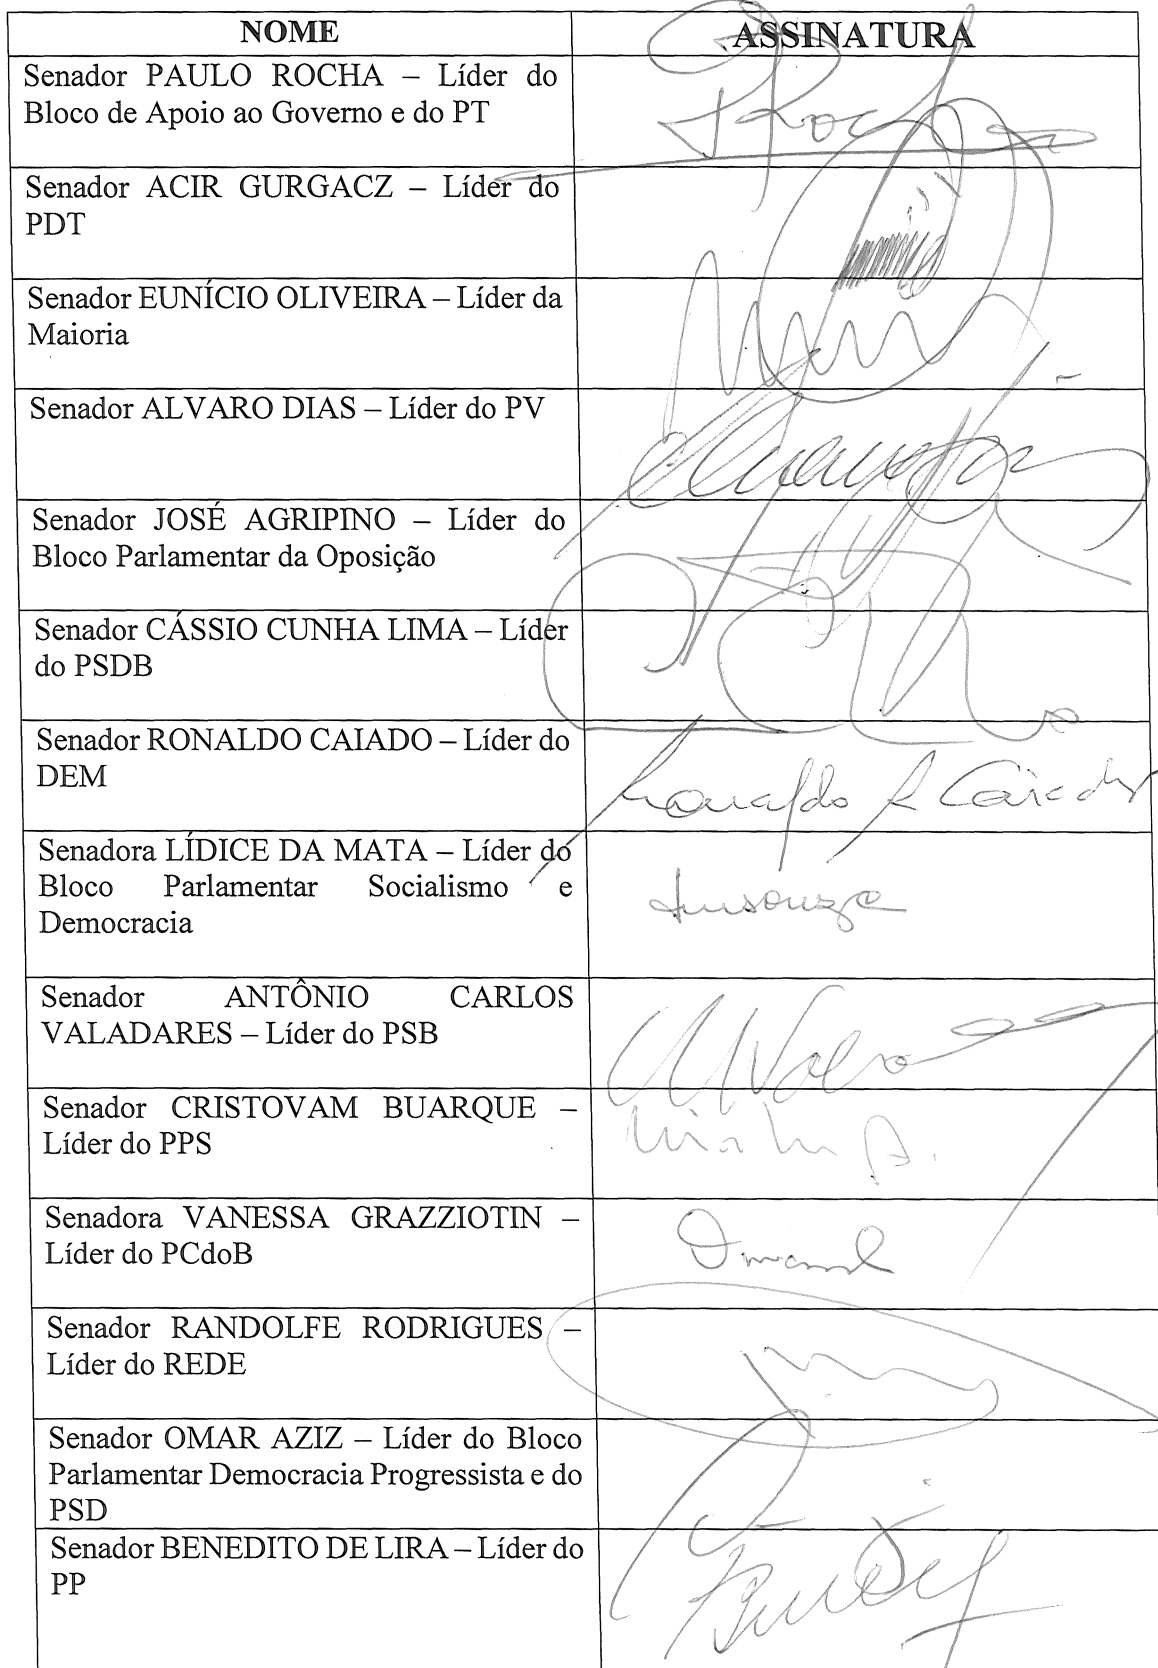 NOME ASSINATURA
Senador PAULO ROCHA – Líder do
Bloco de Apoio ao Governo e do PT
PRocha
Senador ACIR GURGACZ – Líder do
PDT
Senador EUNÍCIO OLIVEIRA – Líder da
Maioria
Senador ALVARO DIAS – Líder do PV
Senador JOSÉ AGRIPINO – Líder do
Bloco Parlamentar da Oposição
Senador CÁSSIO CUNHA LIMA – Líder
do PSDB
Senador RONALDO CAIADO – Líder do
DEM
Ronaldo R Caiado
Senadora LÍDICE DA MATA – Líder do
Bloco Parlamentar Socialismo e
Democracia
Senador ANTÔNIO CARLOS
VALADARES – Líder do PSB
Senador CRISTOVAM BUARQUE –
Líder do PPS
Senadora VANESSA GRAZZIOTIN –
Líder do PCdoB
Senador RANDOLFE RODRIGUES –
Líder do REDE
Senador OMAR AZIZ – Líder do Bloco
Parlamentar Democracia Progressista e do
PSD
Senador BENEDITO DE LIRA – Líder do
PP